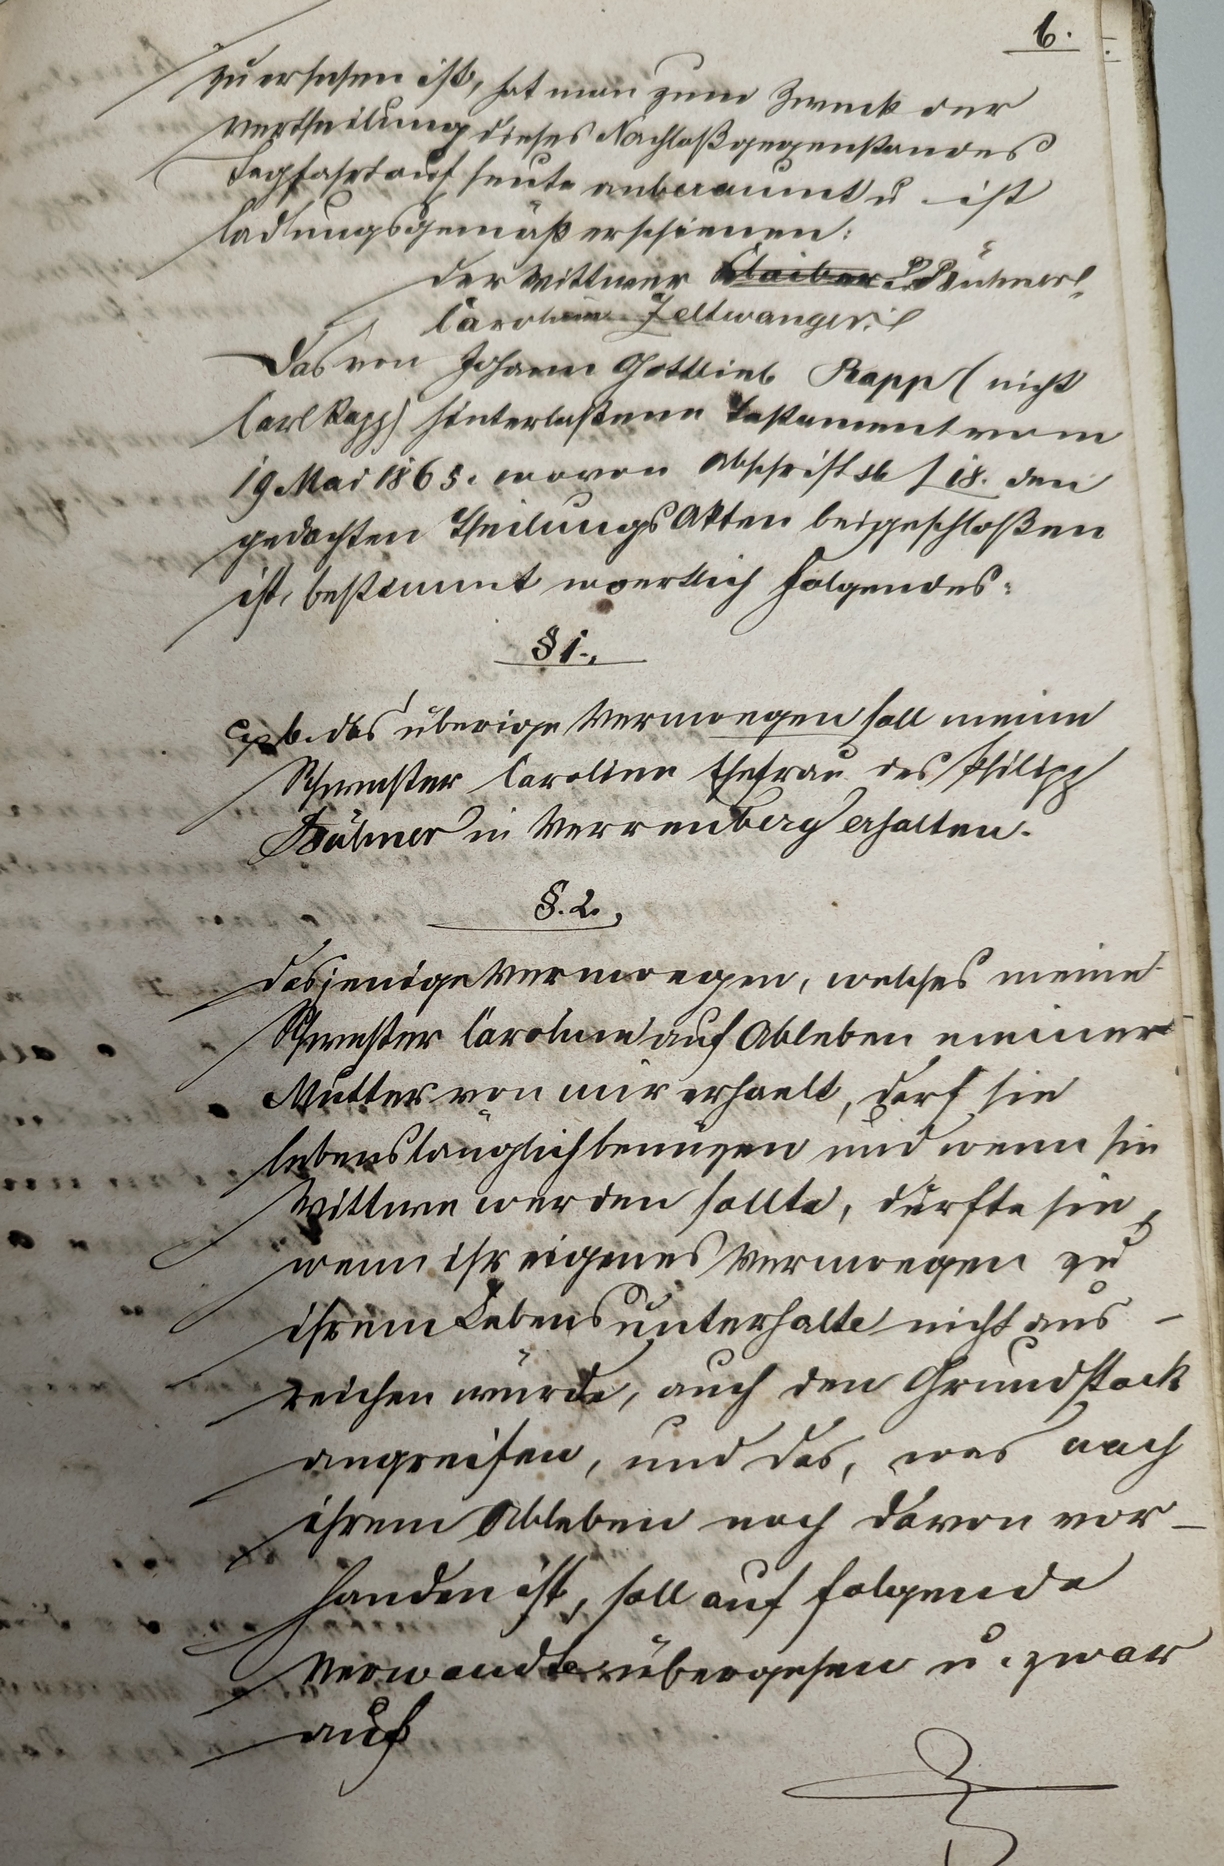 6.
zu ersehen ist, hat man zum Zweck der
Vertheilung dieses Nachlaßgegenstandes
Tagfahrt auf heute anberaumt u. ist
ladungsgemäß erschienen:
der Wittwer
Caroline Zeltwanger
Das von Johann Gottlieb Rapp (nicht
Carl Rapp) hinterlaßene Testament vom
19 Mai 1865. wovon Abschrift sub 18. den
gedachten Theilungs Akten beigeschloßen
ist, bestimmt woertlich folgendes:
§ 1.
b. das überige Vermoegen soll meine
Schwester Caroline Ehefrau des Philipp
in Verrenberg erhalten.
§. 2.
dasjenige Vermoegen, welches meine
Schwester Caroline auf Ableben meiner
Mutter von mir erhaelt, darf sie
lebenslänglich benüzen und wenn sie
Wittwe werden sollte, dürfte sie,
wenn ihr eigenes Vermoegen zu
ihrem Lebensunterhalte nicht aus-
reichen würde, auch den Grundstock
angreifen, und das, was nach
ihrem Ableben noch davon vor-
handen ist, soll auf folgende
Verwandte übergehen u. zwar
auf